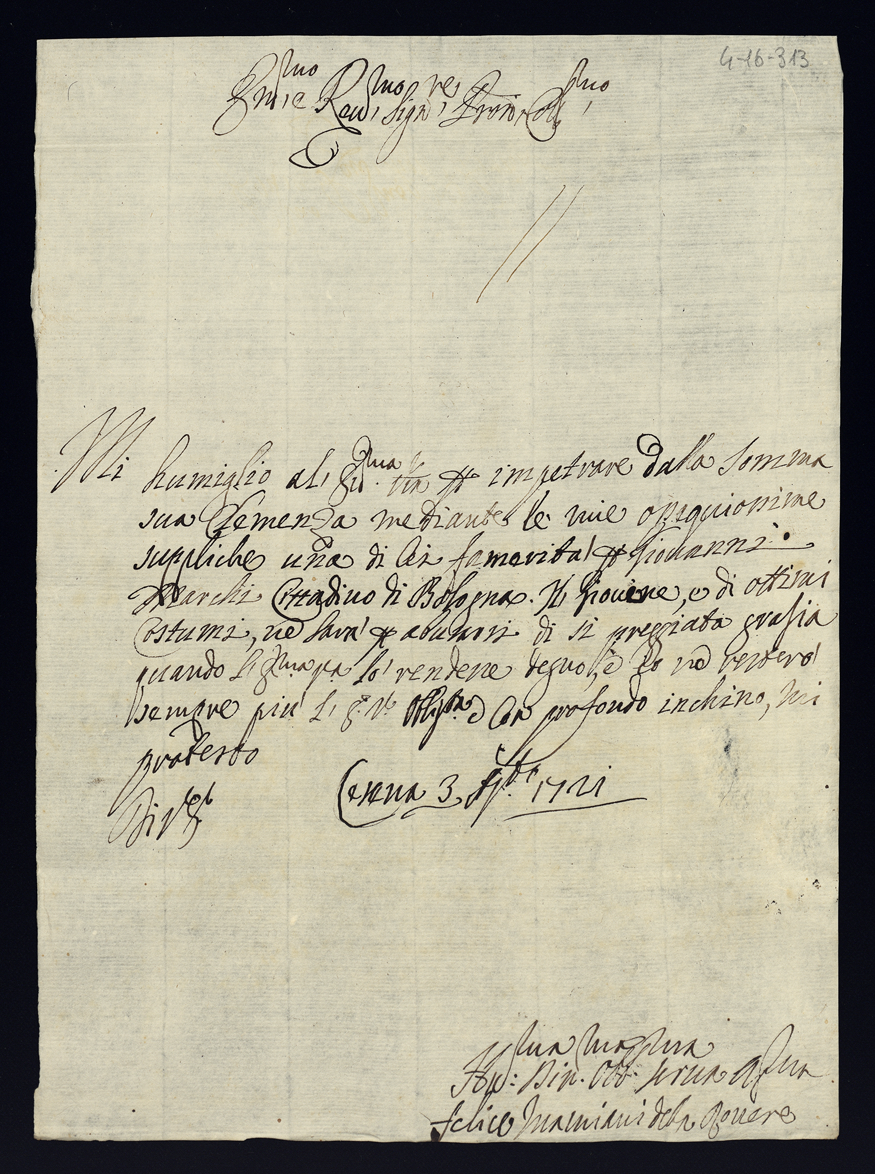 4-16-313
Em:mo e Reu:mo Sig:re Pron: Col:mo
Mi humiglio al, Em:ma Vra per impetrare dalla somma
sua Clemenza mediante le mie ossequiosissime
suppliche una di lei fameritta per Giouanni
Marchi Cittadino di Bologna. Il Giouine, e di ottimi
costumi, ne sarà per abusarsi di si preggiata grazia
quando l'Em:ma Vra lo rendere degno, e io ne resterò
sempre più L, E. V. Obligta e con profondo inchino, mi
protesto
Di V E
Cesena 3 7bre 1721
Hu:ma Diu:ma Obb:ma serua
Felice Mamiani della Rouere